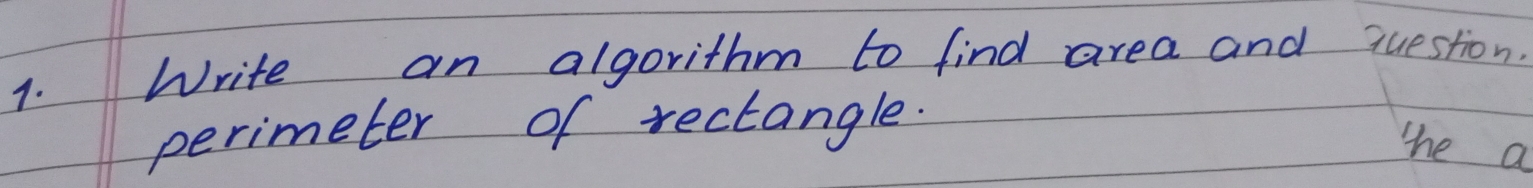 1. Write an algorithm to find area and question.
perimeter of rectangle.
the a